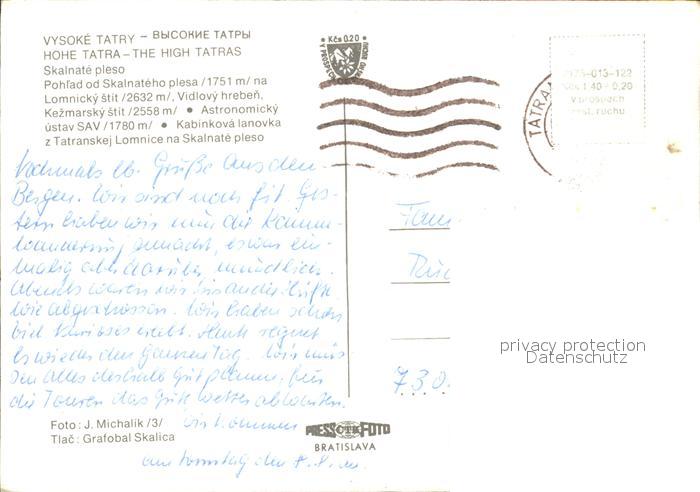 VYSOKÉ TATRY – ВЫСОКИЕ ТАТРЫ
HOHE TATRA – THE HIGH TATRAS
Skalnaté pleso
Pohľad od Skalnatého plesa /1751 m/ na
Lomnický štít /2632 m/, Vidlový hrebeň,
Kežmarský štít /2558 m/ • Astronomický
ústav SAV /1780 m/ • Kabínková lanovka
z Tatranskej Lomnice na Skalnaté pleso
Kčs 0.20
TATRA
Nochmals lb. Grüße aus den
Bergen. Wir sind noch fit. Ges-
tern haben wir nun die Kamm-
wanderung gemacht, es war ein-
malig aber darüber mündlich.
Abends waren wir bis an die Hüfte
wie abgebrochen. Wir haben schon
viel Kurioses erlebt. Heute regnet
es wieder den ganzen Tag. Wir müs-
sen alles deshalb gut planen, für
die Touren das gute Wetter abwarten.
Wir kommen
am Sonntag den 8.8.
Fam
730
Foto: J. Michalík /3/
Tlač: Grafobal Skalica
PRESSFOTO
BRATISLAVA
privacy protection
Datenschutz